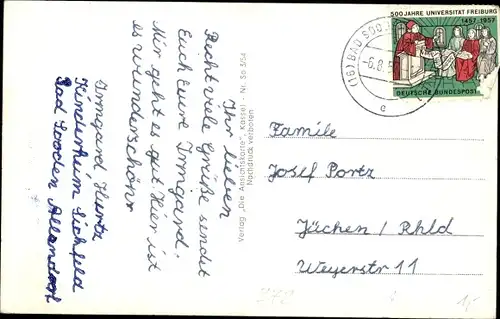 Ihr lieben
Recht viele Grüße sendet
Euch eure Irmgard.
Mir geht es gut. Hier ist
es wunderschön
Irmgard Hurtz
Kinderheim Eichsfeld
Bad Sooden Allendorf
Verlag "Die Ansichtskarte", Kassel - Nr. So 5/54
Nachdruck verboten
500 JAHRE UNIVERSITÄT FREIBURG
1457-1957
DEUTSCHE BUNDESPOST
(16) BAD SOO
-6.8.5
c
Familie
Josef Portz
Jüchen / Rhld
Weyerstr 11